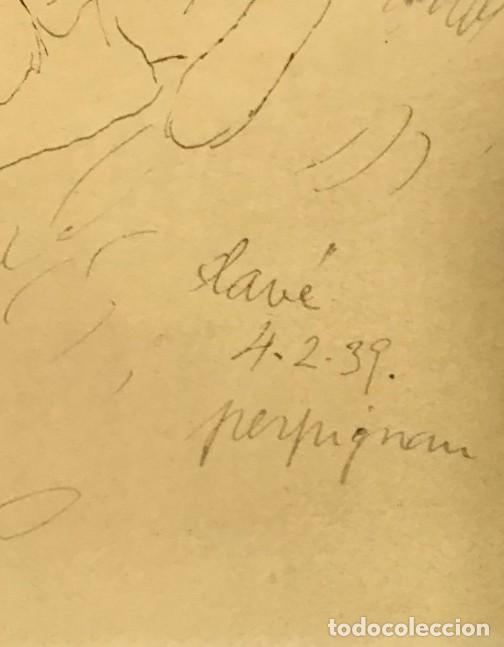 clavé
4.2.39.
perpignan
todocoleccion